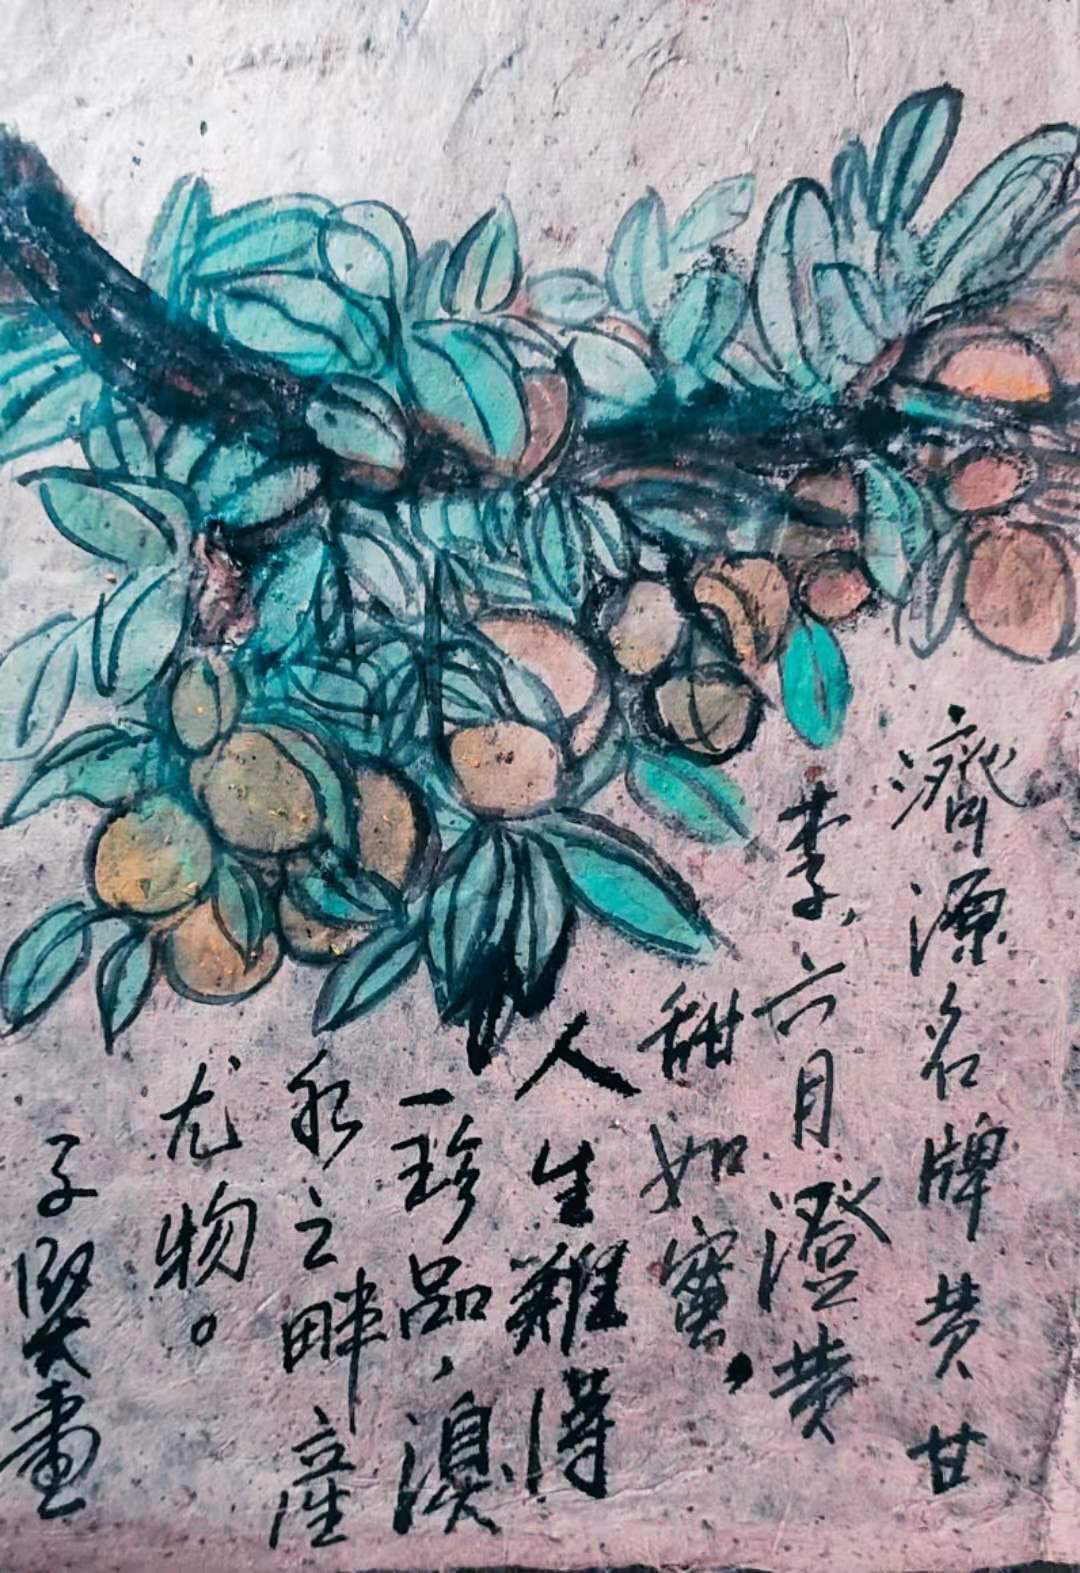 濟源名牌黄甘
李,六月澄黄
甜如蜜,
人生難得
一珍品,溴
水之畔産
尤物。
子堅畫